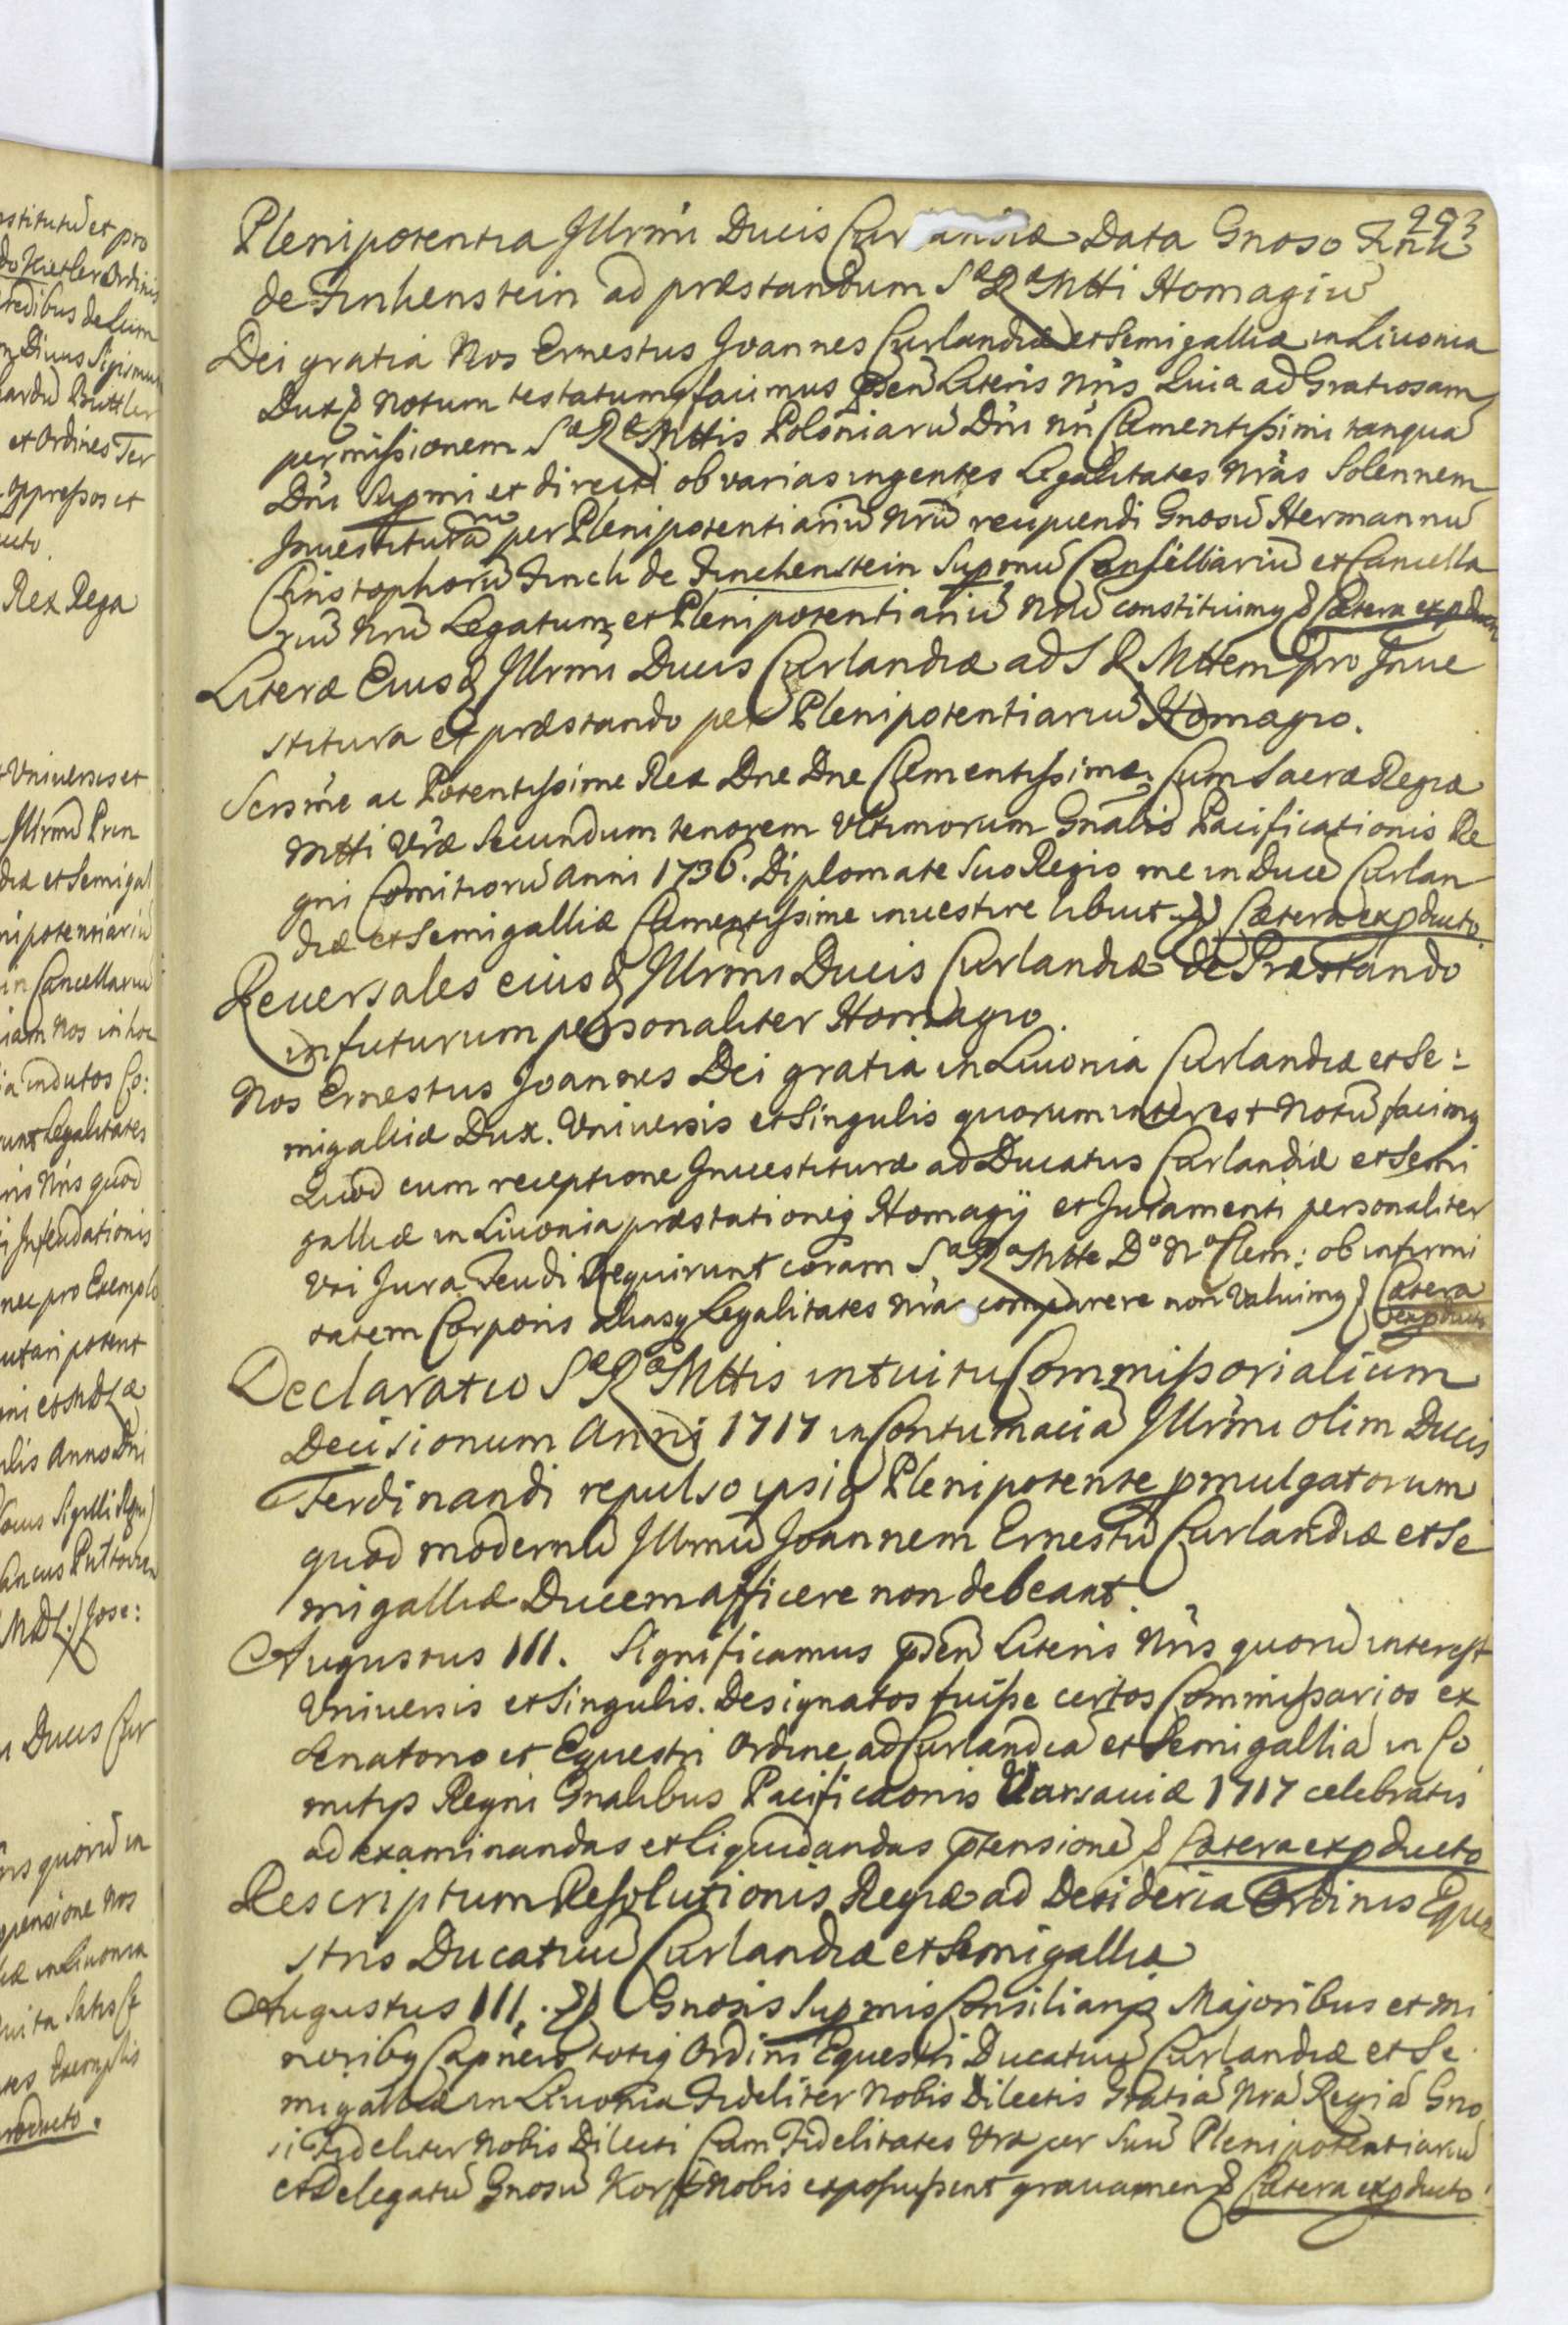 293
Plenipotentia Jllrmi Ducis Curlandiæ Data Gnoso Finck
de Finkenstein ad præstandum Sæ Ræ Mtti Homagiũ
Dei gratia Nos Ernestus Joannes Curlandiæ et Semigalliæ in Liuonia
Dux & notum testatumq facimus psen Literis Nris Quia ad Gratiosam
permissionem Sæ Ræ Mttis Poloniarũ Dni nri Clementissimi tanquã
Dni Supmi et directi ob varias ingentes Legalitates nras Solennem
Jnuestiturã per Plenipotentiariũ nrũ recipiendi Gnosũ Hermannũ
Christophorũ Finck de Finchenstein Supmũ Consiliariũ et Cancella
riũ Nrũ Legatum et Plenipotentiariũ Nrũ constituimq & Cætera ex pducto
Literæ Eiusd Jllrmi Ducis Curlandiæ ad S R Mttem pro Jnue
stitura et præstando per Plenipotentiariũ Homagio.
Sersme ac Potentissime Rex Dne Dne Clementissime, Cum Sacræ Regiæ
Mtti Vræ Secundum tenorem Vltimorum Gnalis Pacificationis Re
gni Comitiorũ Anni 1736. Diplomate Suo Regio me in Ducẽ Curlan
diæ et Semigalliæ Clementissime inuestire libuit & Cætera ex pducto.
Reuersales eiusd Jllrmi Ducis Curlandiæ de Præstando
in futurum personaliter Homagio.
Nos Ernestus Joannes Dei gratia in Liuonia Curlandiæ et Se:
migalliæ Dux. Vniuersis et Singulis quorum interest Notũ facimq
Quod cum receptione Jnuestituræ ad Ducatus Curlandiæ et Semi
galliæ in Liuonia præstationiq Homagij et Juramenti personaliter
Vti Jura Feudi Requirunt coram Sa Ra Mtte Do No Clem: ob infirmi
tatem Corporis aliasq Legalitates nras comparere non Valuimq & Cætera
ex pducto
Declaratio Sæ Ræ Mttis intuitu Commissorialium
Decisionum Anni 1717 in Contumaciã Jllrmi olim Ducis
Ferdinandi repulso ipsiq Plenipotente pmulgatorum
quod modernũ Jllrmũ Joannem Ernestũ Curlandiæ et Se
migalliæ Ducem afficere non debeant.
Augustus III. Significamus psen Literis Nris quorũ interest
Vniuersis et Singulis. Designatos fuisse certos Commissarios ex
Senatorio et Equestri Ordine ad Curlandiã et Semigalliã in Co
mitijs Regni Gnalibus Pacificaonis Varsauiæ 1717 celebratis
ad examinandas et Liquidandas ptensionẽ & Cætera ex pducto
Rescriptum Resolutionis Regiæ ad Desideria Ordinis Eque
stris Ducatuũ Curlandiæ et Semigalliæ
Augustus III. & Gnosis Supmis Consiliarijs Majoribus et mi
noribq Capneis totiq Ordini Equestri Ducatuũ Curlandiæ et Se
migalliæ in Liuonia Fideliter Nobis Dilectis Gratiã Nrã Regiã Gno
si Fideliter Nobis Dilecti Cum Fidelitates Vræ per Suũ Plenipotentiariũ
et Delegatũ Gnosũ Korff Nobis exposuissent grauamen & Cætera ex pducto